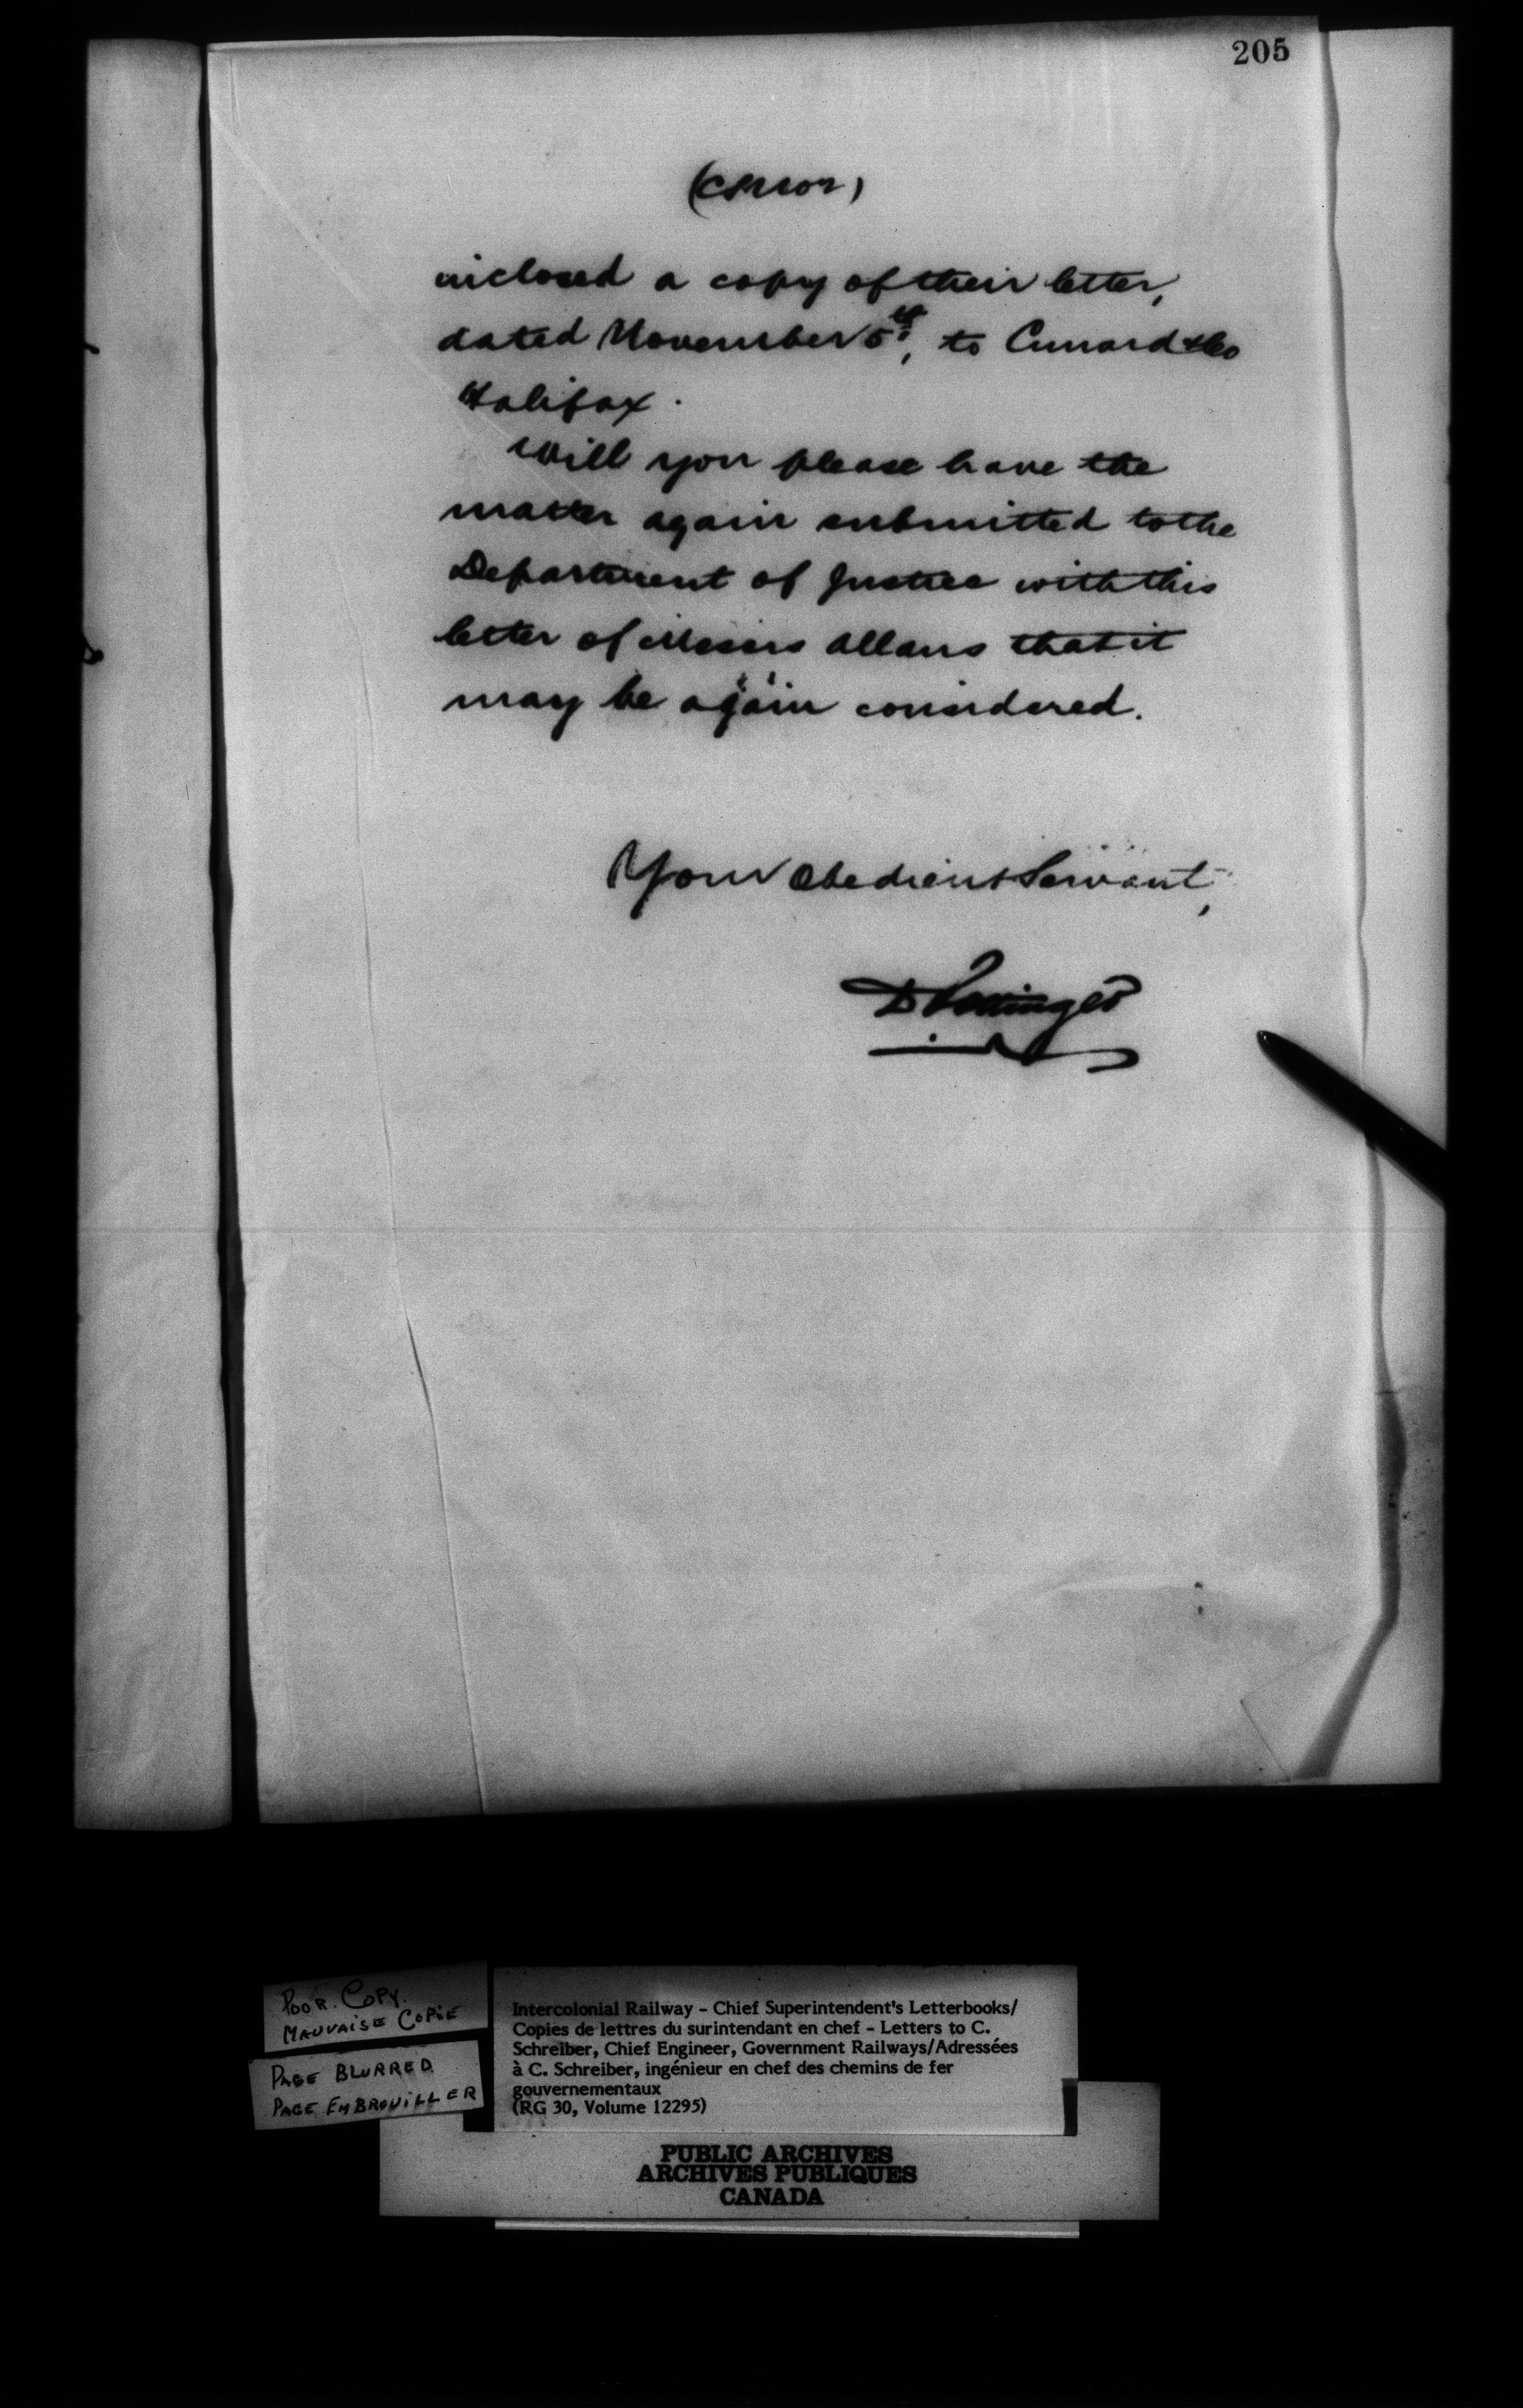 205
inclosed a copy of their letter,
dated November 5th, to Cunard & Co
Halifax.
Will you please have the
matter again submitted to the
Department of Justice with this
letter of Messrs Allans that it
may be again considered.
Your Obedient Servant,
D Pottinger
POOR. COPY.
MAUVAISE COPIE
PAGE BLURRED
PAGE EMBROUILLER
Intercolonial Railway - Chief Superintendent's Letterbooks/
Copies de lettres du surintendant en chef - Letters to C.
Schreiber, Chief Engineer, Government Railways/Adressées
à C. Schreiber, ingénieur en chef des chemins de fer
gouvernementaux
(RG 30, Volume 12295)
PUBLIC ARCHIVES
ARCHIVES PUBLIQUES
CANADA